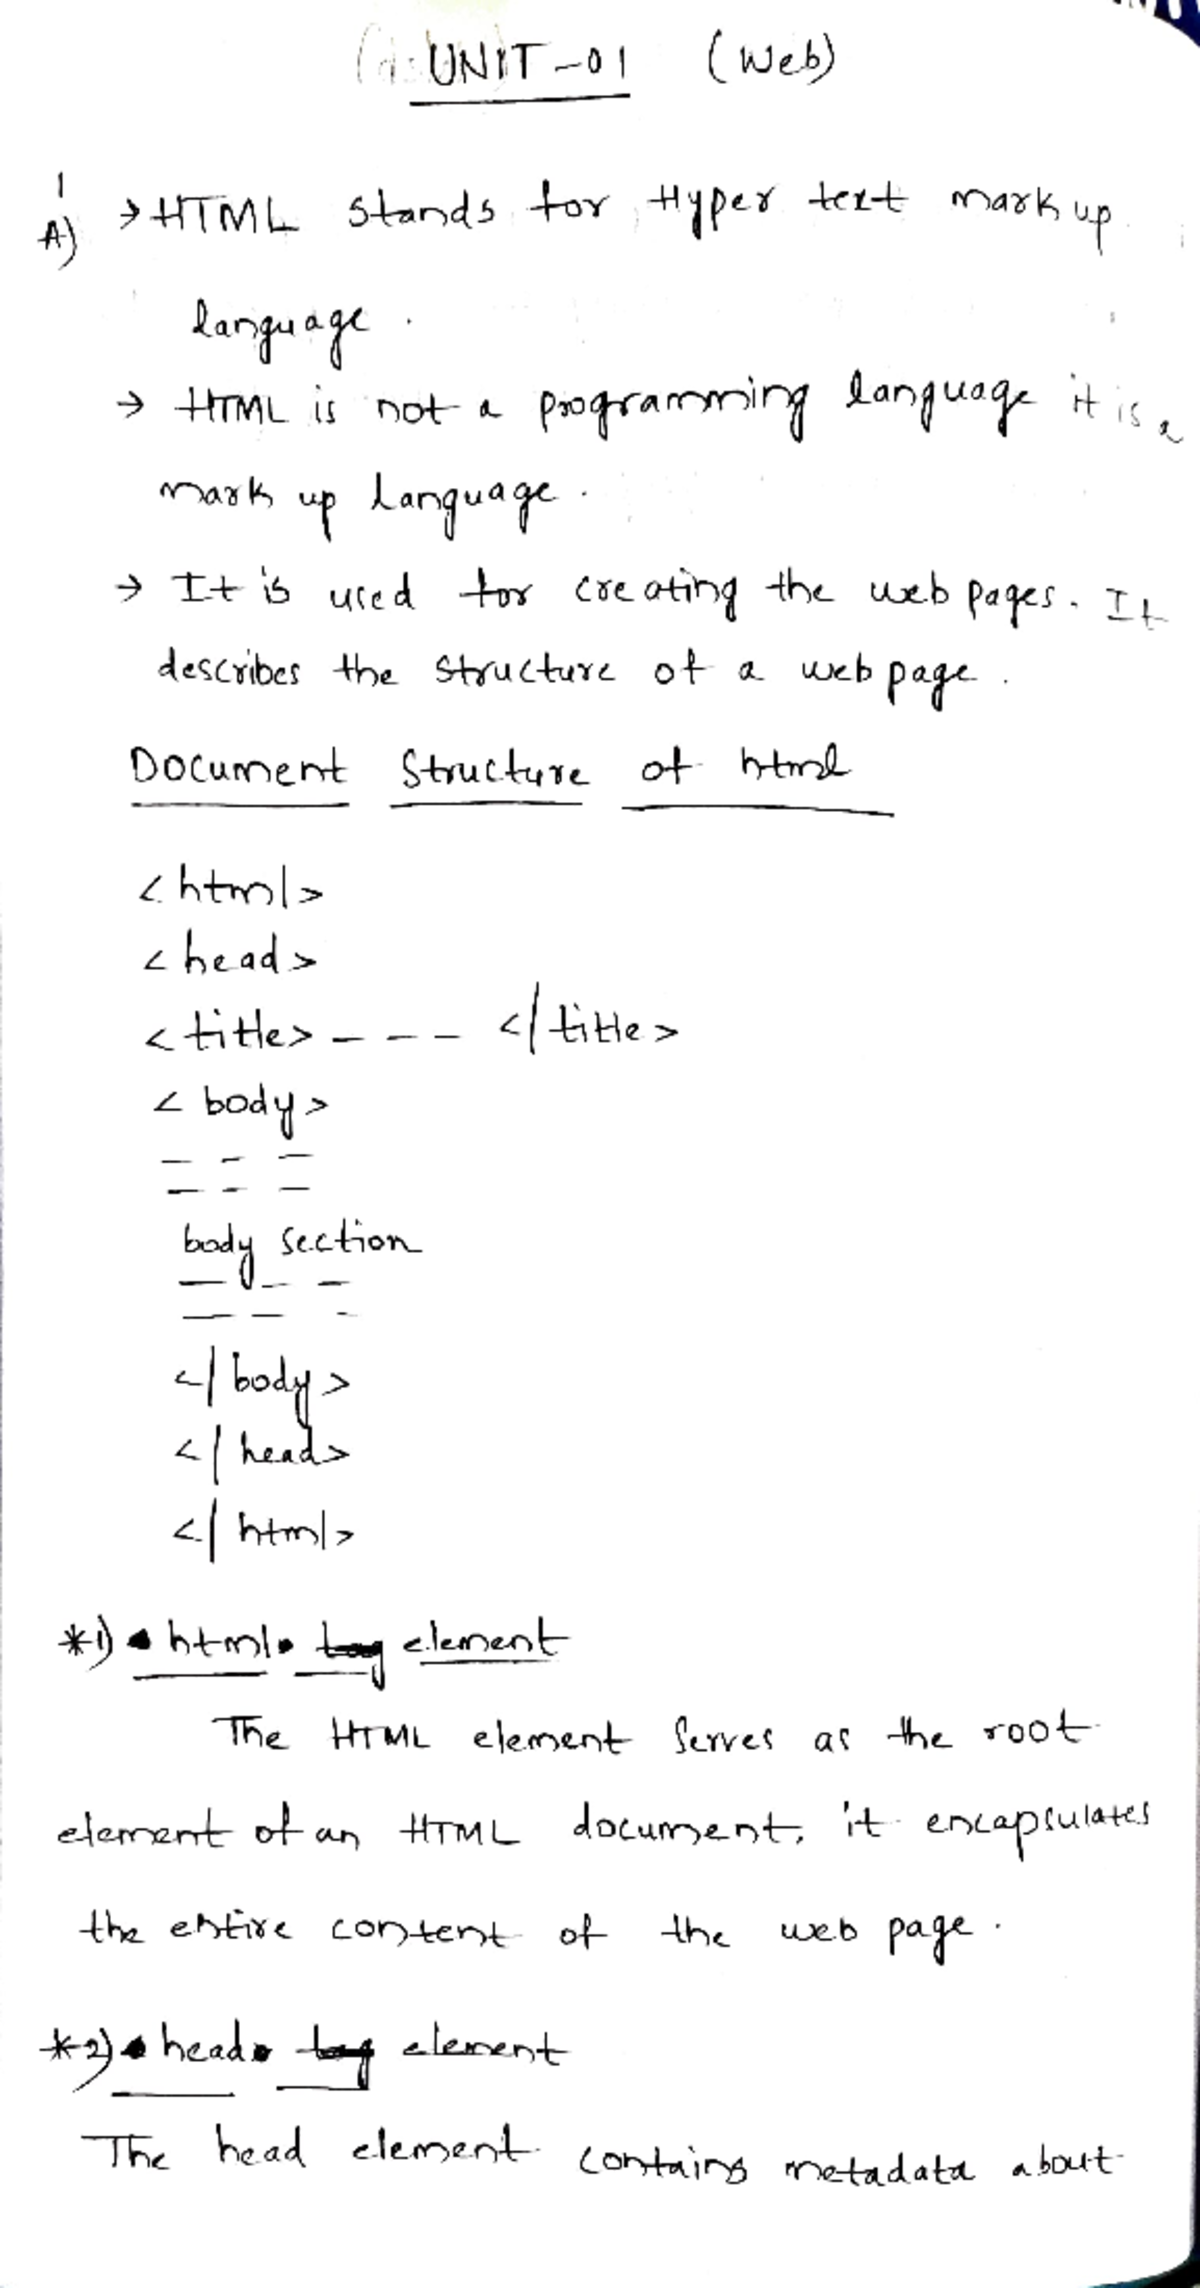 UNIT-01 (Web)
1
A) → HTML stands for Hyper text mark up
language.
→ HTML is not a programming language it is a
mark up language.
→ It is used for creating the web pages. It
describes the structure of a web page.
Document Structure of html
<html>
<head>
<title> - - - </title>
<body>
- - -
- - -
body section
- - -
- - -
</body>
</head>
</html>
*1) html element
The HTML element serves as the root
element of an HTML document, it encapsulates
the entire content of the web page.
*2) head element
The head element contains metadata about